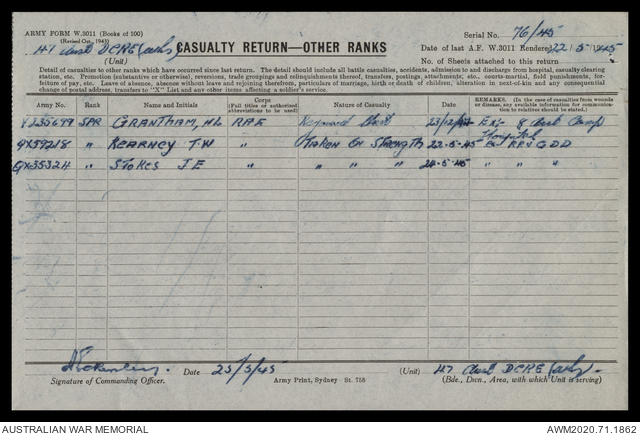 ARMY FORM W.3011 (Books of 100)
(Revised Oct., 1943)
Serial No. 76/45
47 Aust DCRE (Wks)
(Unit)
CASUALTY RETURN—OTHER RANKS
Date of last A.F. W.3011 Rendered 22/5/1945
No. of Sheets attached to this return
Detail of casualties to other ranks which have occurred since last return. The detail should include all battle casualties, accidents, admission to and discharge from hospital, casualty clearing
station, etc. Promotion (substantive or otherwise), reversions, trade groupings and relinquishments thereof, transfers, postings, attachments; etc., courts-martial, field punishments, for-
feiture of pay, etc. Leave of absence, absence without leave and rejoining therefrom, particulars of marriage, birth or death of children, alteration in next-of-kin and any consequential
change of postal address, transfers to "X" List and any other items affecting a soldier's service.
Army No. Rank Name and Initials Corps (Full titles or authorized abbreviations to be used) Nature of Casualty Date REMARKS. (In the case of casualties from wounds or disease, any available information for communication to relatives should be stated.)
SPR GRANTHAM, HL RAE Unit 23/12/ Ex 8 Aust Camp
Hospital
QX59218 " KEARNEY T.W " Taken on Strength 22-5-45 GDD
QX35324 " STOKES J E " " " " 24-5-45 " " "
Signature of Commanding Officer.
Date 25/5/45
Army Print, Sydney St. 758
(Unit) 47 Aust DCRE (Wks)
(Bde., Dscn., Area, with which Unit is serving)
AUSTRALIAN WAR MEMORIAL
AWM2020.71.1862